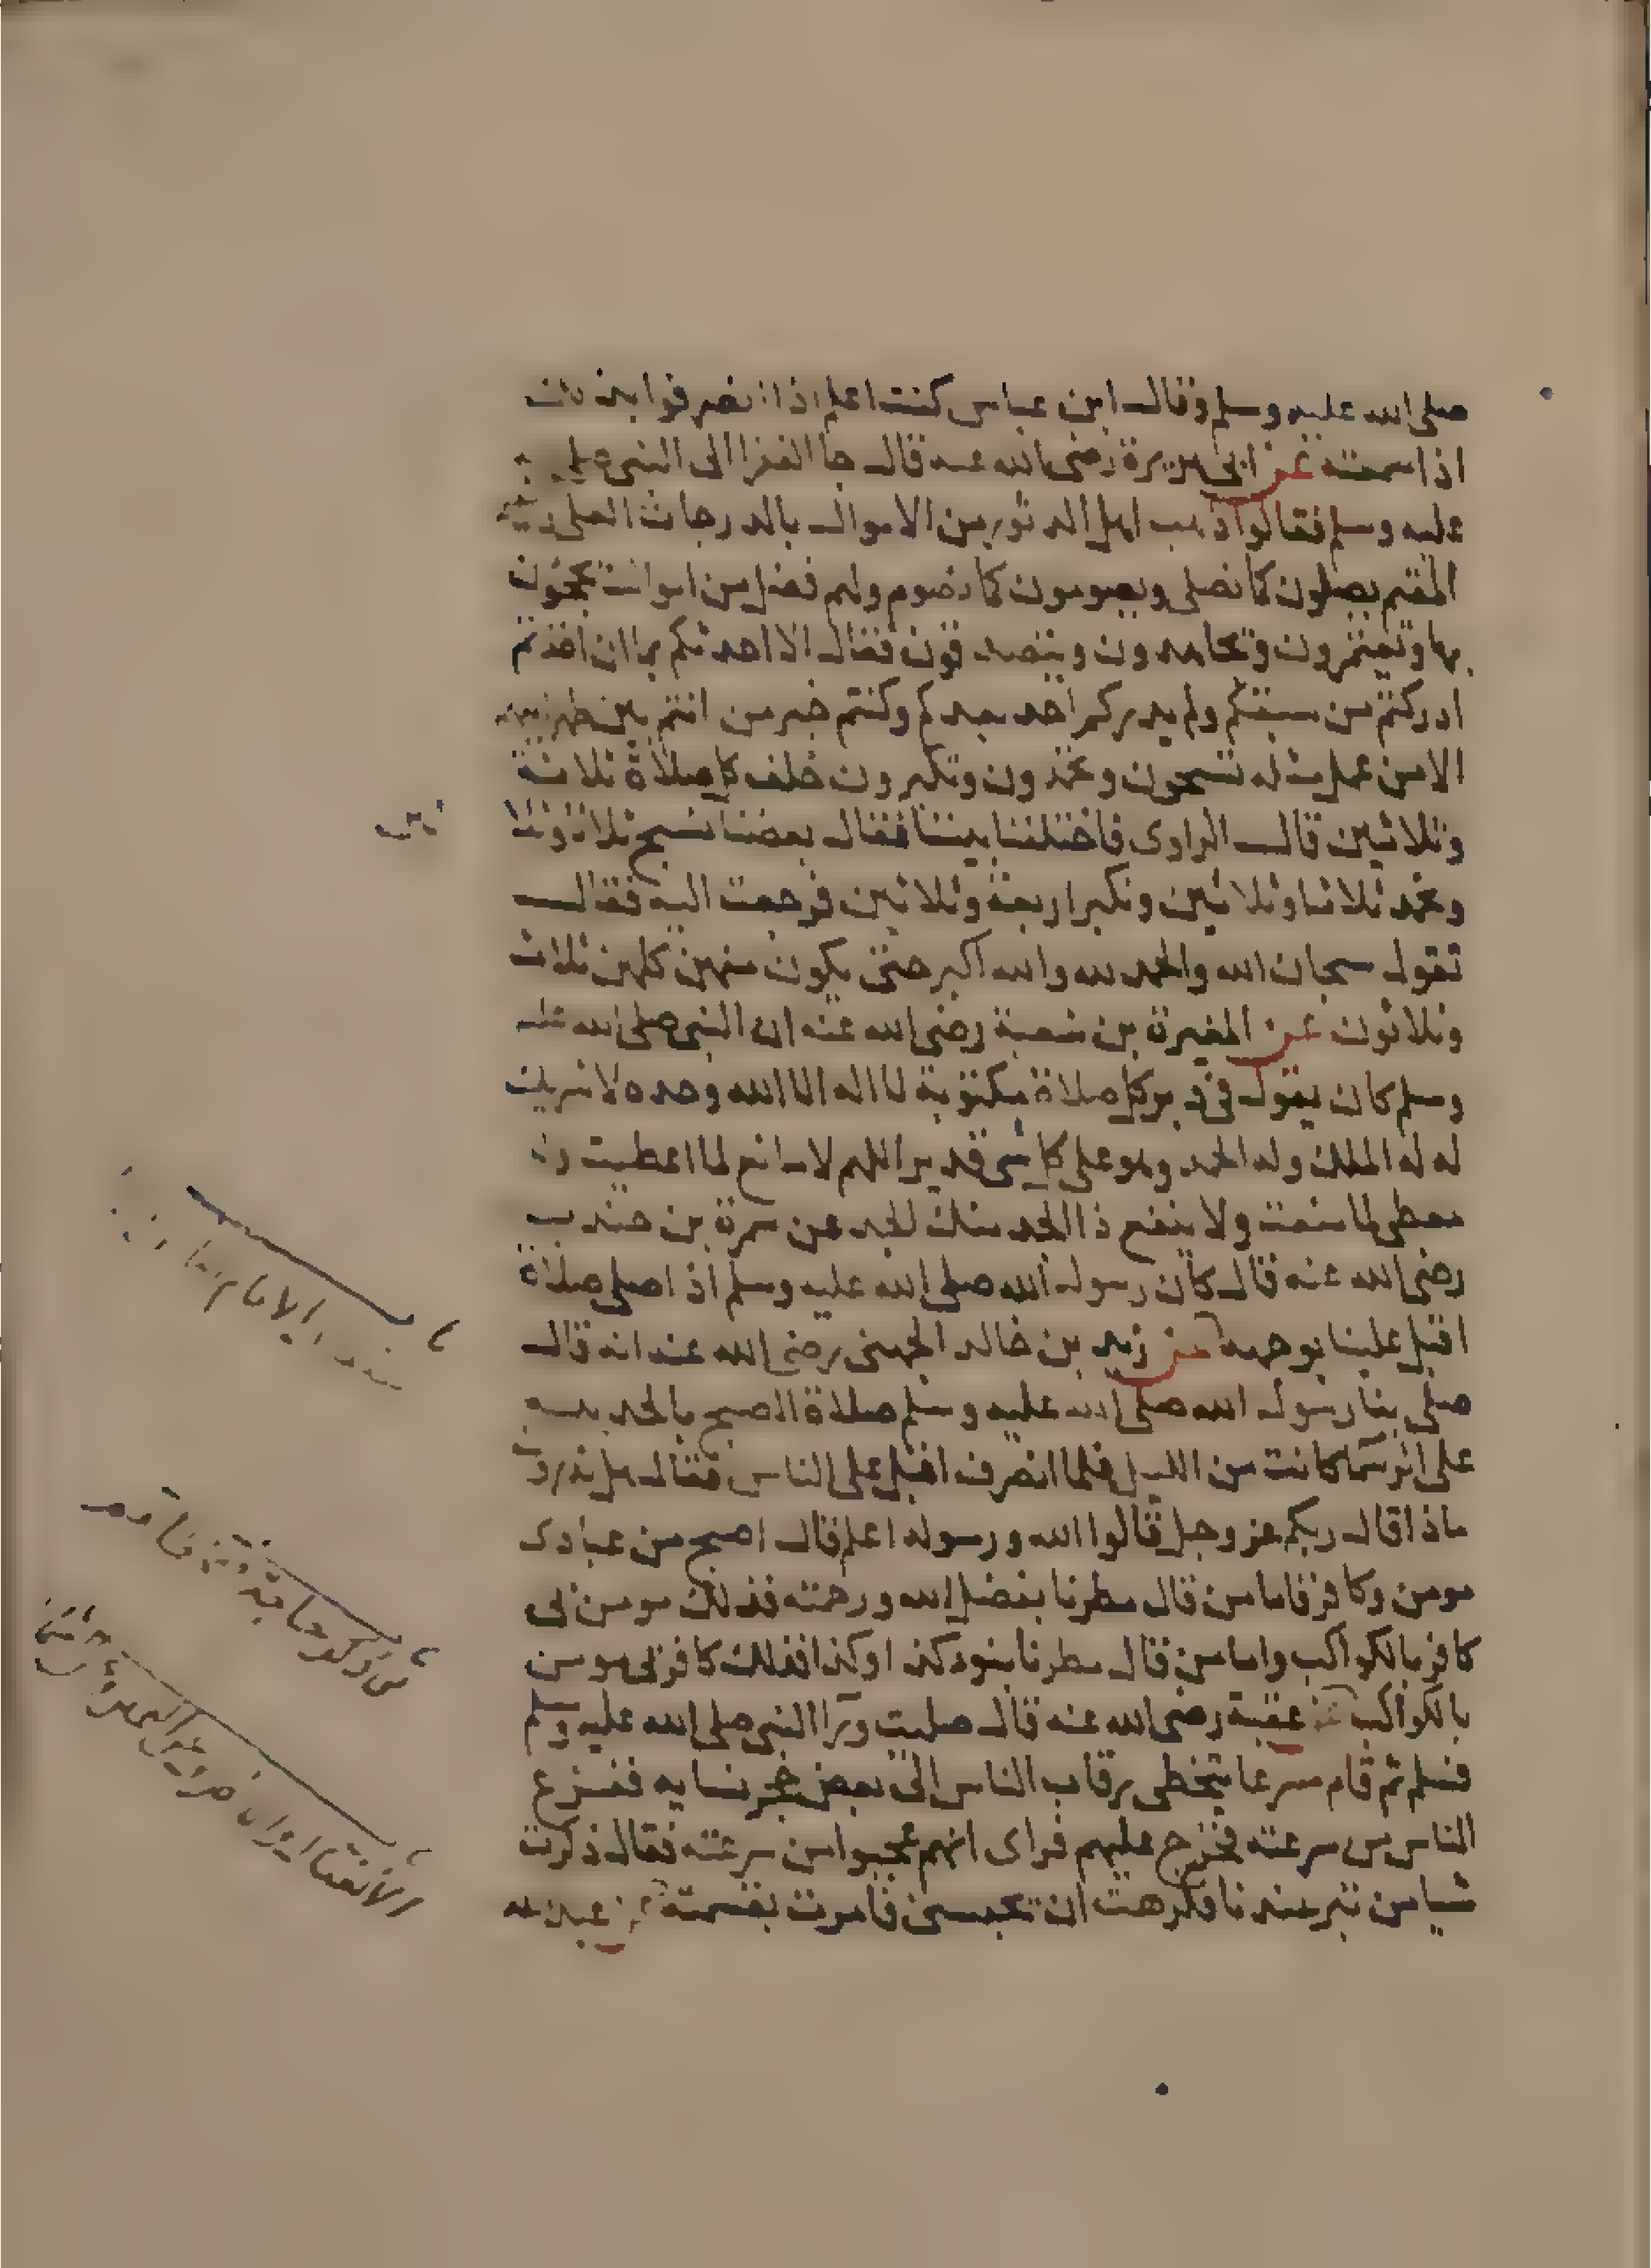 صلى الله عليه وسلم وقال ابن عباس كنت اعلم اذا انصرفوا بذلك
اذا سمعته عن ابى هريرة رضى الله عنه قال جا الفقرا الى النبى
عليه وسلم فقالوا ذهب اهل الدثور من الاموال بالدرجات العلى
المقيم يصلون كما نصلى ويصومون كما نصوم ولهم فضل من اموال يحجون
بها ويعتمرون ويجاهدون ويتصدقون فقال الا احدثكم بما ان اخذتم
ادركتم من سبقكم ولم يدرككم احد بعدكم وكنتم خير من انتم بين
الا من عمل مثله تسبحون وتحمدون وتكبرون خلف كل صلاة ثلاثة
وثلاثين قال الراوى فاختلفنا بيننا فقال بعضنا نسبح ثلاثا
ونحمد ثلاثا وثلاثين ونكبر اربعة وثلاثين فرجعت اليه فقال
تقول سبحان الله والحمد لله والله اكبر حتى يكون منهن كلهن ثلاث
وثلاثون عن المغيرة بن شعبة رضى الله عنه ان النبى صلى الله عليه
وسلم كان يقول فى دبر كل صلاة مكتوبة لا اله الا الله وحده لا شريك
له له الملك وله الحمد وهو على كل شى قدير اللهم لا مانع لما اعطيت ولا
معطى لما منعت ولا ينفع ذا الجد منك الجد عن سمرة بن جندب
رضى الله عنه قال كان رسول الله صلى الله عليه وسلم اذا صلى صلاة
اقبل علينا بوجهه عن زيد بن خالد الجهنى رضى الله عنه انه قال
صلى بنا رسول الله صلى الله عليه وسلم صلاة الصبح بالحديبية
على اثر سما كانت من الليل فلما انصرف اقبل على الناس فقال هل تدرون
ماذا قال ربكم عز وجل قالوا الله ورسوله اعلم قال اصبح من عبادى
مومن وكافر فاما من قال مطرنا بفضل الله ورحمته فذلك مومن بى
كافر بالكواكب واما من قال مطرنا بنو كذا وكذا فذلك كافر بى مومن
بالكواكب عن عقبة رضى الله عنه قال صليت ورا النبى صلى الله عليه وسلم
فسلم ثم قام مسرعا يتخطى رقاب الناس الى بعض حجر نسايه ففزع
الناس من سرعته فخرج عليهم فراى انهم عجبوا من سرعته فقال ذكرت
شيا من تبر عندنا فكرهت ان تحبسنى فامرت بقسمته عن عبد الله